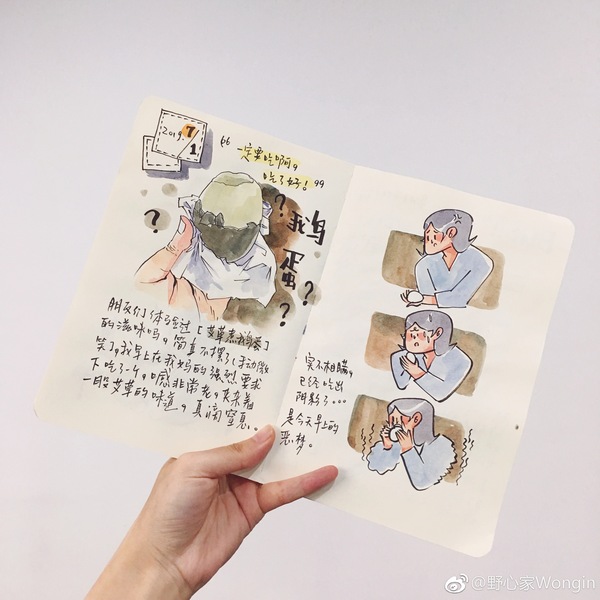 2019. 7/1
“一定要吃啊，
吃了好！”
?
?
鹅
蛋
?
?
朋友们体验过[艾草煮鹅蛋]
的滋味吗，简直不摆了(手动微
笑)，我早上在我妈的强烈要求
下吃了一个，口感非常老，夹杂着
一股艾草的味道，真滴窒息。
实不相瞒，
已经吃出
阴影了...
是今天早上的
恶梦。
@野心家Wongin